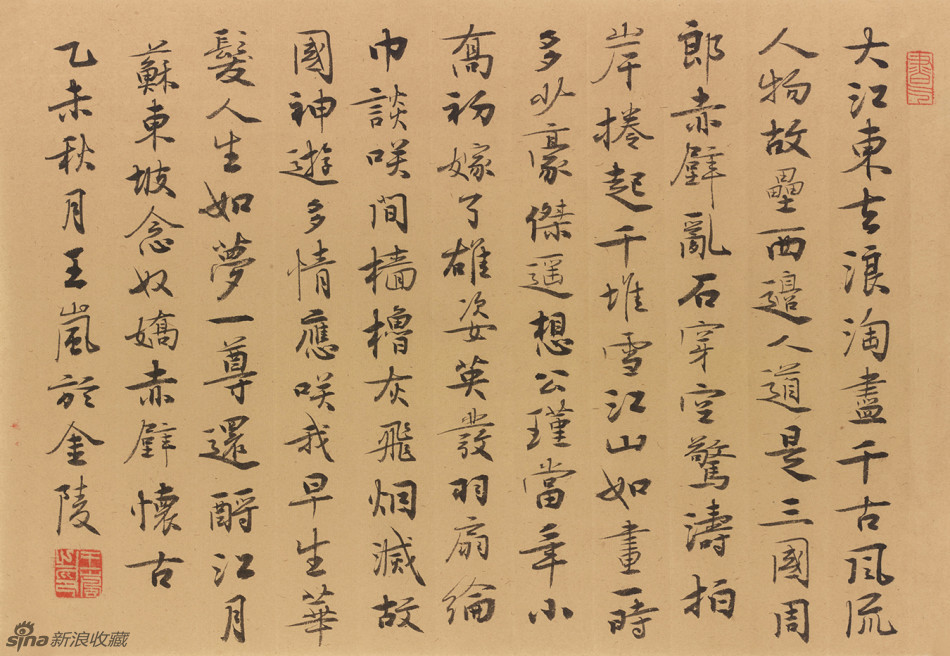 大江東去浪淘盡千古風流
人物故壘西邉人道是三國周
郎赤壁亂石穿空驚濤拍
岸捲起千堆雪江山如畫一時
多少豪傑遥想公瑾當年小
喬初嫁了雄姿英發羽扇綸
巾談咲間檣櫓灰飛烟滅故
國神遊多情應咲我早生華
髮人生如夢一尊還酹江月
蘇東坡念奴嬌赤壁懷古
乙未秋月王嵐於金陵
sina新浪收藏